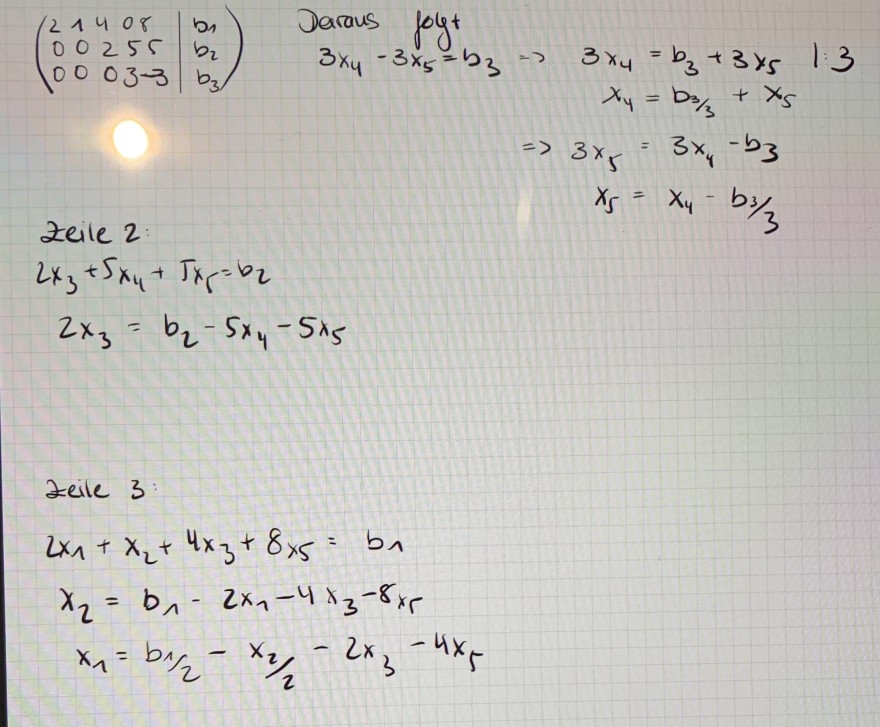 2 1 4 0 8 | b1
0 0 2 5 5 | b2
0 0 0 3 -3 | b3
Daraus folgt
3x4 - 3x5 = b3 => 3x4 = b3 + 3x5 |:3
x4 = b3/3 + x5
=> 3x5 = 3x4 - b3
x5 = x4 - b3/3
Zeile 2:
2x3 + 5x4 + 5x5 = b2
2x3 = b2 - 5x4 - 5x5
Zeile 3:
2x1 + x2 + 4x3 + 8x5 = b1
x2 = b1 - 2x1 - 4x3 - 8x5
x1 = b1/2 - x2/2 - 2x3 - 4x5